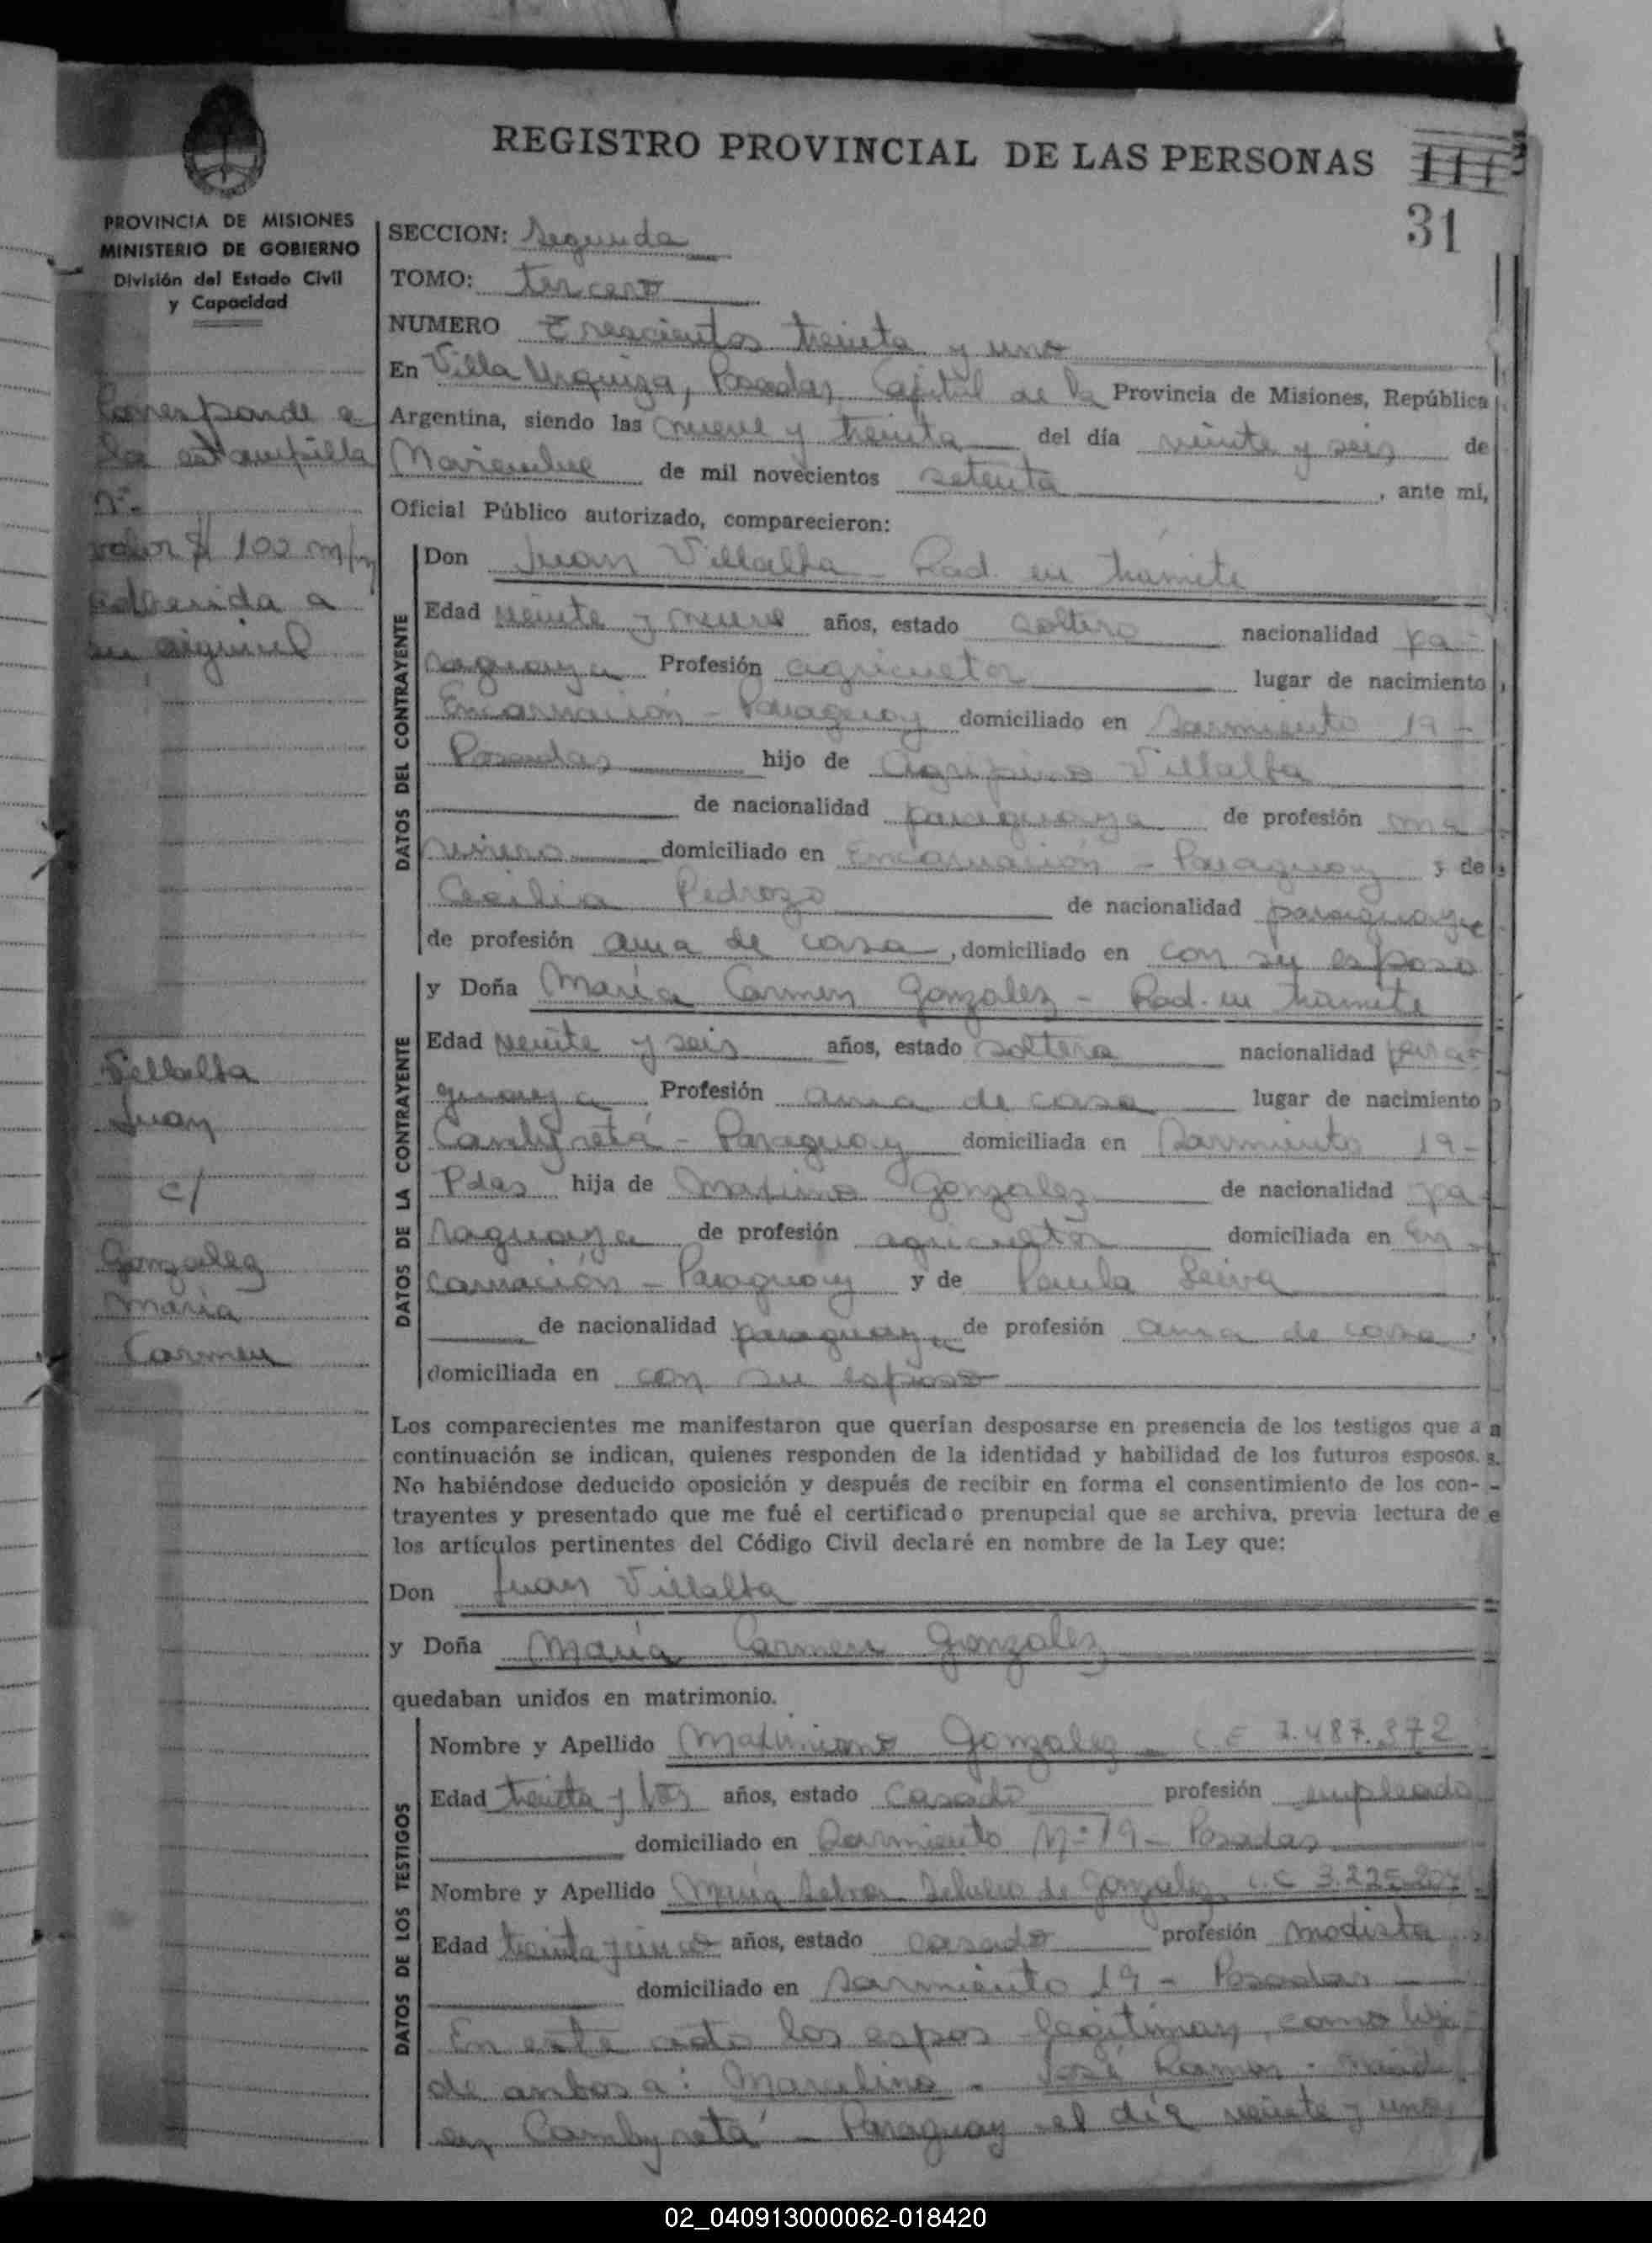 REGISTRO PROVINCIAL DE LAS PERSONAS
31
PROVINCIA DE MISIONES
MINISTERIO DE GOBIERNO
División del Estado Civil
y Capacidad
Corresponde a
la estampilla
Nº
valor $ 100 m/n
adherida a
su original
Villalba
Juan
c/
Gonzalez
Maria
Carmen
SECCION: Segunda
TOMO: tercero
NUMERO Trescientos treinta y uno
En Villa Urquiza, Posadas, Capital de la Provincia de Misiones, República
Argentina, siendo las nueve y treinta del día veinte y seis de
Noviembre de mil novecientos setenta, ante mi,
Oficial Público autorizado, comparecieron:
DATOS DEL CONTRAYENTE
Don Juan Villalba - Rad. en trámite
Edad veinte y nueve años, estado soltero nacionalidad pa-
raguaya Profesión agricultor lugar de nacimiento
Encarnación - Paraguay domiciliado en Sarmiento 19 -
Posadas hijo de Agripino Villalba
de nacionalidad paraguaya de profesión ma
rinero domiciliado en Encarnación - Paraguay y de
Cecilia Pedrozo de nacionalidad paraguaya
de profesión ama de casa, domiciliado en con su esposo
DATOS DE LA CONTRAYENTE
y Doña María Carmen Gonzalez - Rad. en trámite
Edad veinte y seis años, estado soltera nacionalidad para-
guaya Profesión ama de casa lugar de nacimiento
Cambyretá - Paraguay domiciliada en Sarmiento 19 -
Pdas hija de Maximo Gonzalez de nacionalidad pa
raguaya de profesión agricultor domiciliada en En
carnación - Paraguay y de Paula Leiva
de nacionalidad paraguaya de profesión ama de casa,
domiciliada en con su esposo
Los comparecientes me manifestaron que querían desposarse en presencia de los testigos que a
continuación se indican, quienes responden de la identidad y habilidad de los futuros esposos.
No habiéndose deducido oposición y después de recibir en forma el consentimiento de los con-
trayentes y presentado que me fué el certificado prenupcial que se archiva, previa lectura de
los artículos pertinentes del Código Civil declaré en nombre de la Ley que:
Don Juan Villalba
y Doña María Carmen Gonzalez
quedaban unidos en matrimonio.
DATOS DE LOS TESTIGOS
Nombre y Apellido Maximiano Gonzalez C.E 7.487.372
Edad treinta y dos años, estado casado profesión empleado
domiciliado en Sarmiento Nº 19 - Posadas
Nombre y Apellido María de Gonzalez L.C 3.225.
Edad treinta y cinco años, estado casado profesión modista
domiciliado en Sarmiento 19 - Posadas
En este acto los espos legitiman, como hijo
de ambos a: Marcelino - José Ramon -
en Cambyretá - Paraguay el día veinte y uno
02_040913000062-018420